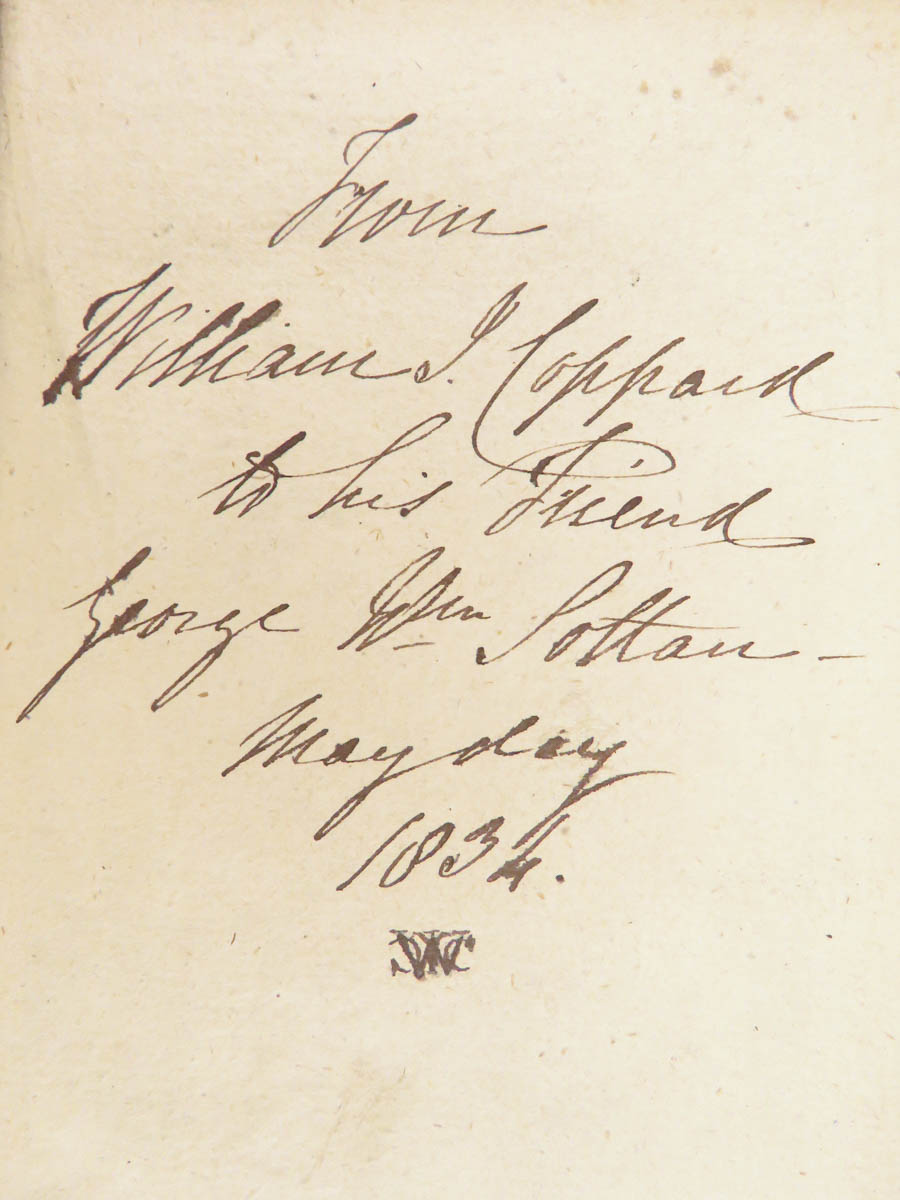 From
William I. Coppard
to his Friend
George Wm Soltau -
May day
1834.